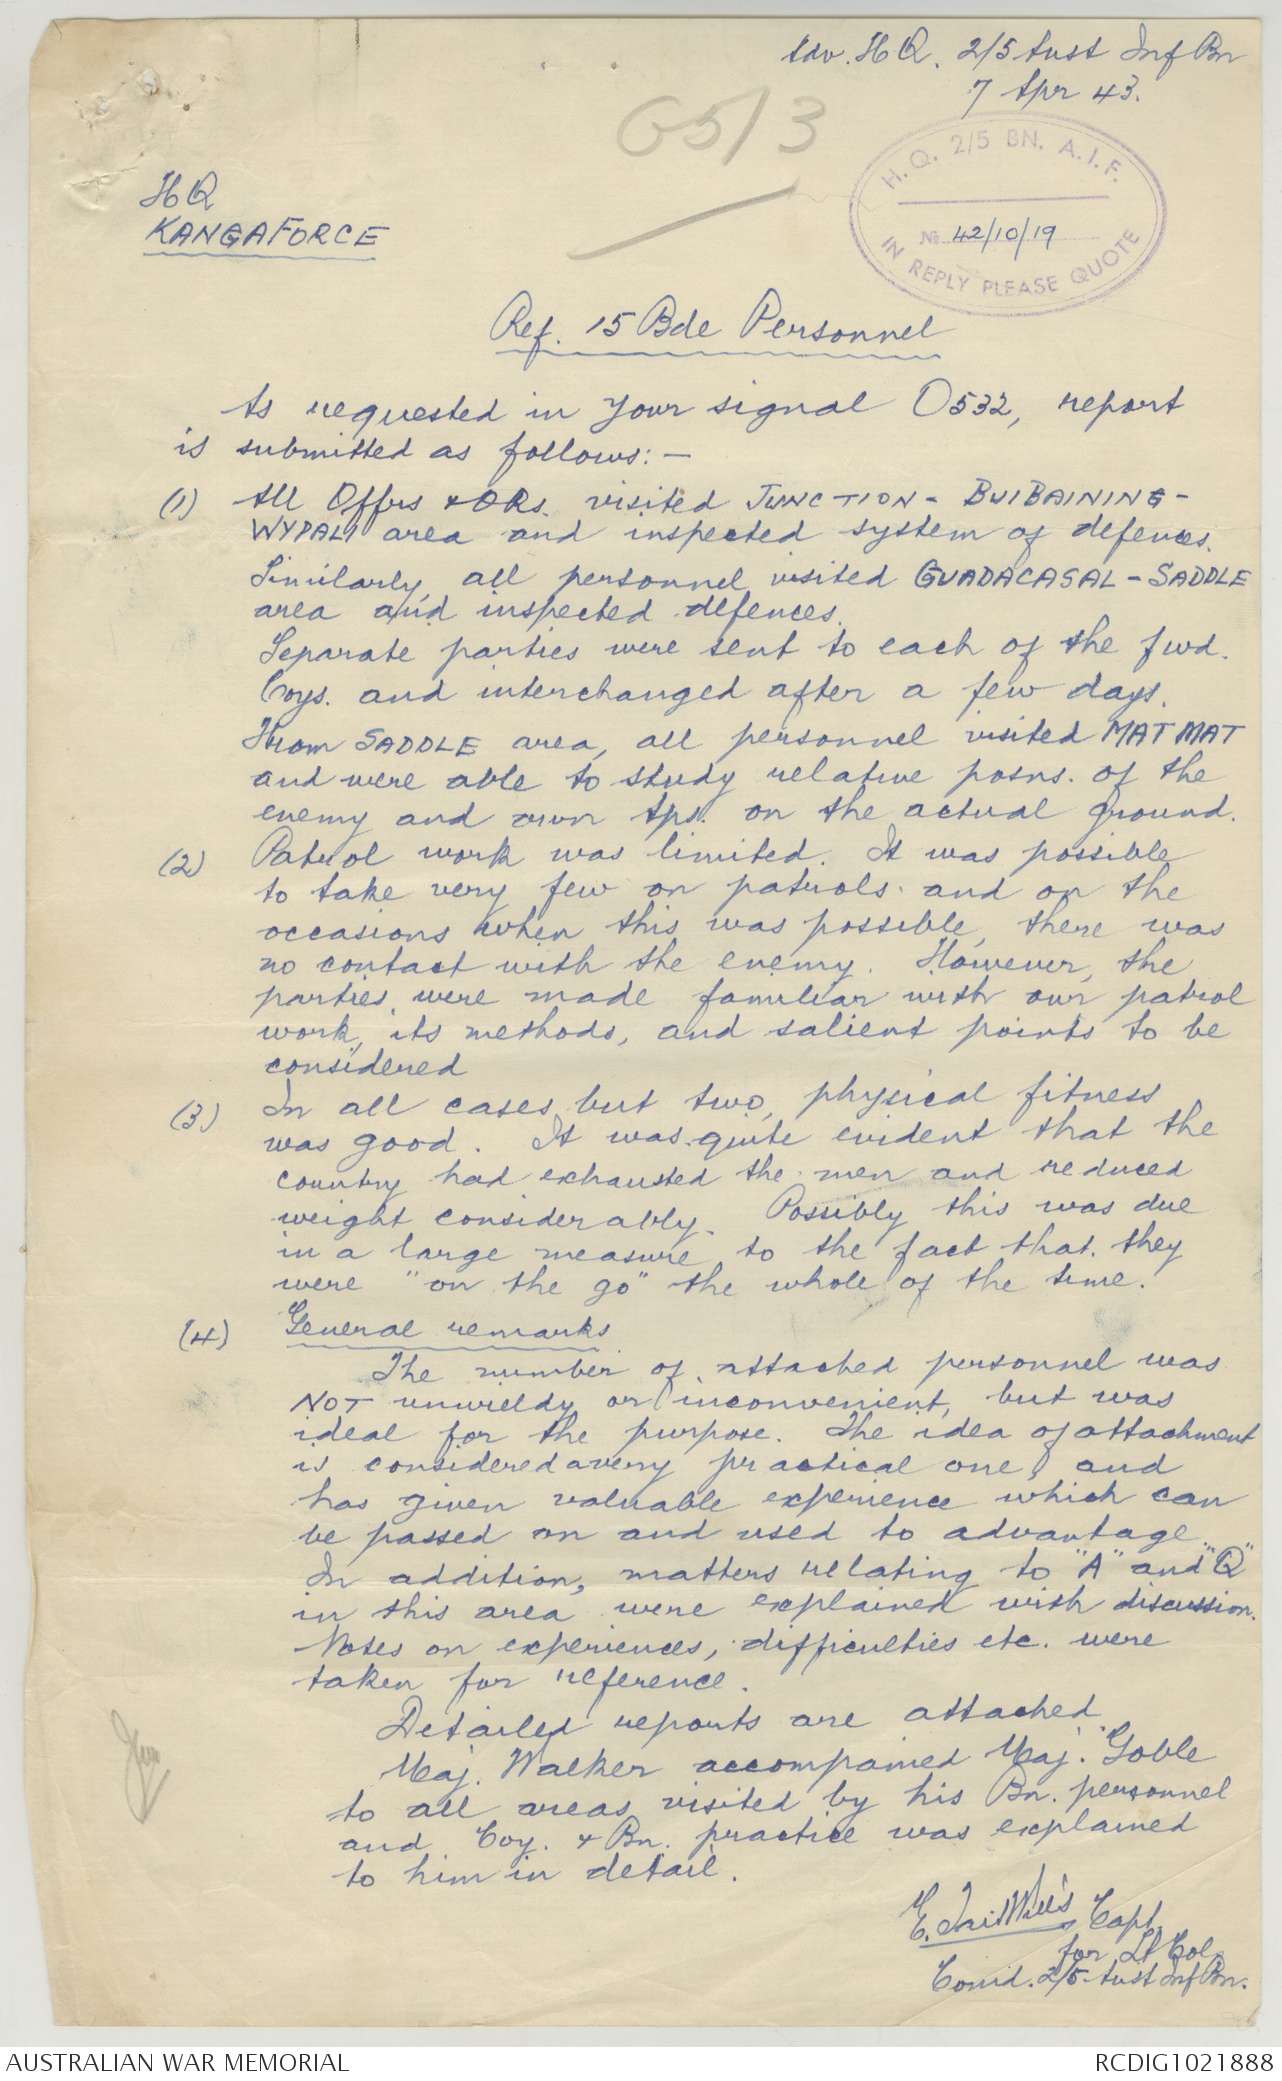 Adv. HQ. 2/5 Aust Inf Bn
7 Apr 43.
G5/3
H.Q. 2/5 BN. A.I.F.
No 42/10/19
IN REPLY PLEASE QUOTE
HQ
KANGAFORCE
Ref. 15 Bde Personnel
As requested in your signal O532, report
is submitted as follows:-
(1) All Offrs & ORs. visited JUNCTION - BUIBAINING -
WYPALI area and inspected system of defences.
Similarly, all personnel visited GUADACASAL - SADDLE
area and inspected defences.
Separate parties were sent to each of the fwd.
Coys. and interchanged after a few days.
From SADDLE area, all personnel visited MAT MAT
and were able to study relative posns. of the
enemy and own tps. on the actual ground.
(2) Patrol work was limited. It was possible
to take very few on patrols and on the
occasions when this was possible, there was
no contact with the enemy. However, the
parties were made familiar with our patrol
work, its methods, and salient points to be
considered
(3) In all cases but two, physical fitness
was good. It was quite evident that the
country had exhausted the men and reduced
weight considerably. Possibly this was due
in a large measure to the fact that they
were "on the go" the whole of the time.
(4) General remarks
The number of attached personnel was
NOT unwieldy or inconvenient, but was
ideal for the purpose. The idea of attachment
is considered a very practical one, and
has given valuable experience which can
be passed on and used to advantage.
In addition, matters relating to "A" and "Q"
in this area were explained with discussion.
Notes on experiences, difficulties etc. were
taken for reference.
Detailed reports are attached.
Maj. Walker accompained Maj. Goble
to all areas visited by his Bn. personnel
and Coy. & Bn. practice was explained
to him in detail.
E. Capt.
for Lt Col.
Comd. 2/5 Aust Inf Bn.
AUSTRALIAN WAR MEMORIAL
RCDIG1021888